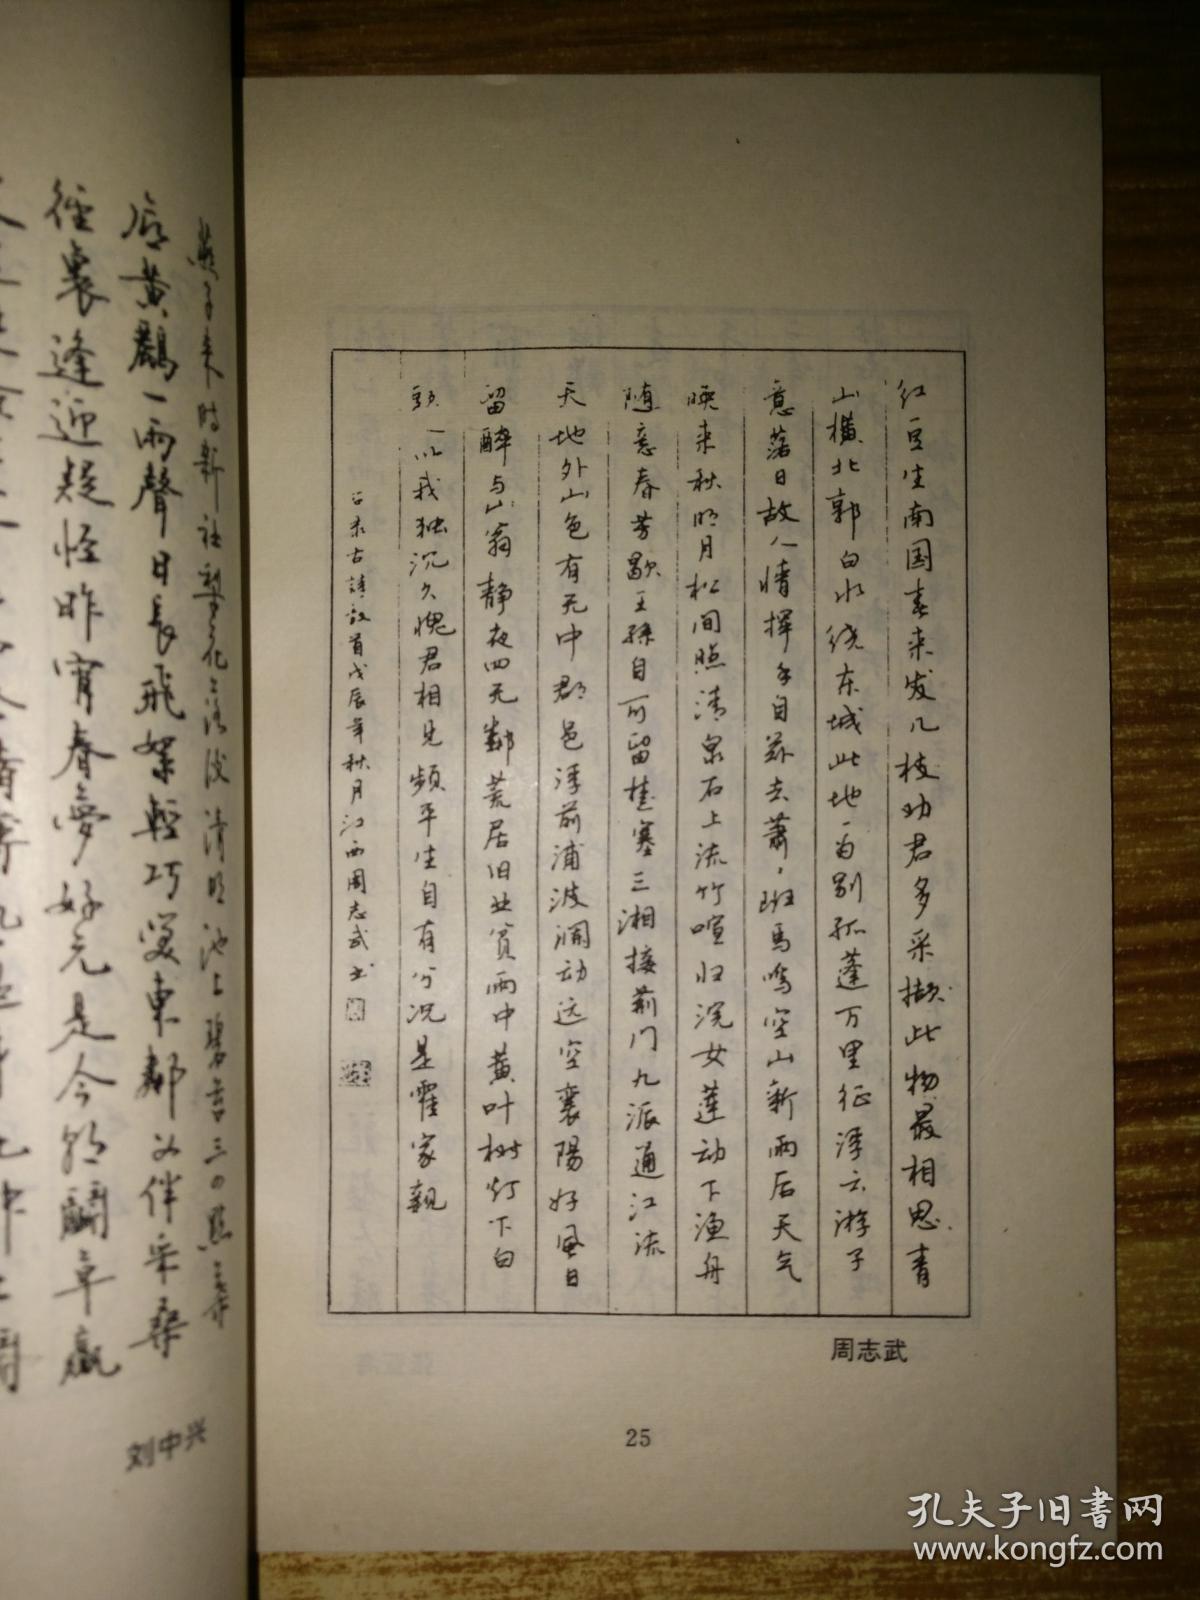 红豆生南国春来发几枝劝君多采撷此物最相思青
山横北郭白水绕东城此地一为别孤蓬万里征浮云游子
意落日故人情挥手自兹去萧々班马鸣空山新雨后天气
晚来秋明月松间照清泉石上流竹喧归浣女莲动下渔舟
随意春芳歇王孙自可留楚塞三湘接荆门九派通江流
天地外山色有无中郡邑浮前浦波澜动远空襄陽好风日
留醉与山翁静夜四无鄰荒居旧业贫雨中黄叶树灯下白
头人以我独沉久愧君相见频平生自有分况是霍家親
古诗
首戊辰年秋月江西周志武书
周志武
25
燕子来时新社梨花落後清明池上碧苔三四點葉
底黄鸝一兩聲日長飛絮輕巧笑東鄰女伴采桑
徑裏逢迎疑怪昨宵春夢好元是今朝鬭草贏
刘中兴
孔夫子旧書网
www.kongfz.com